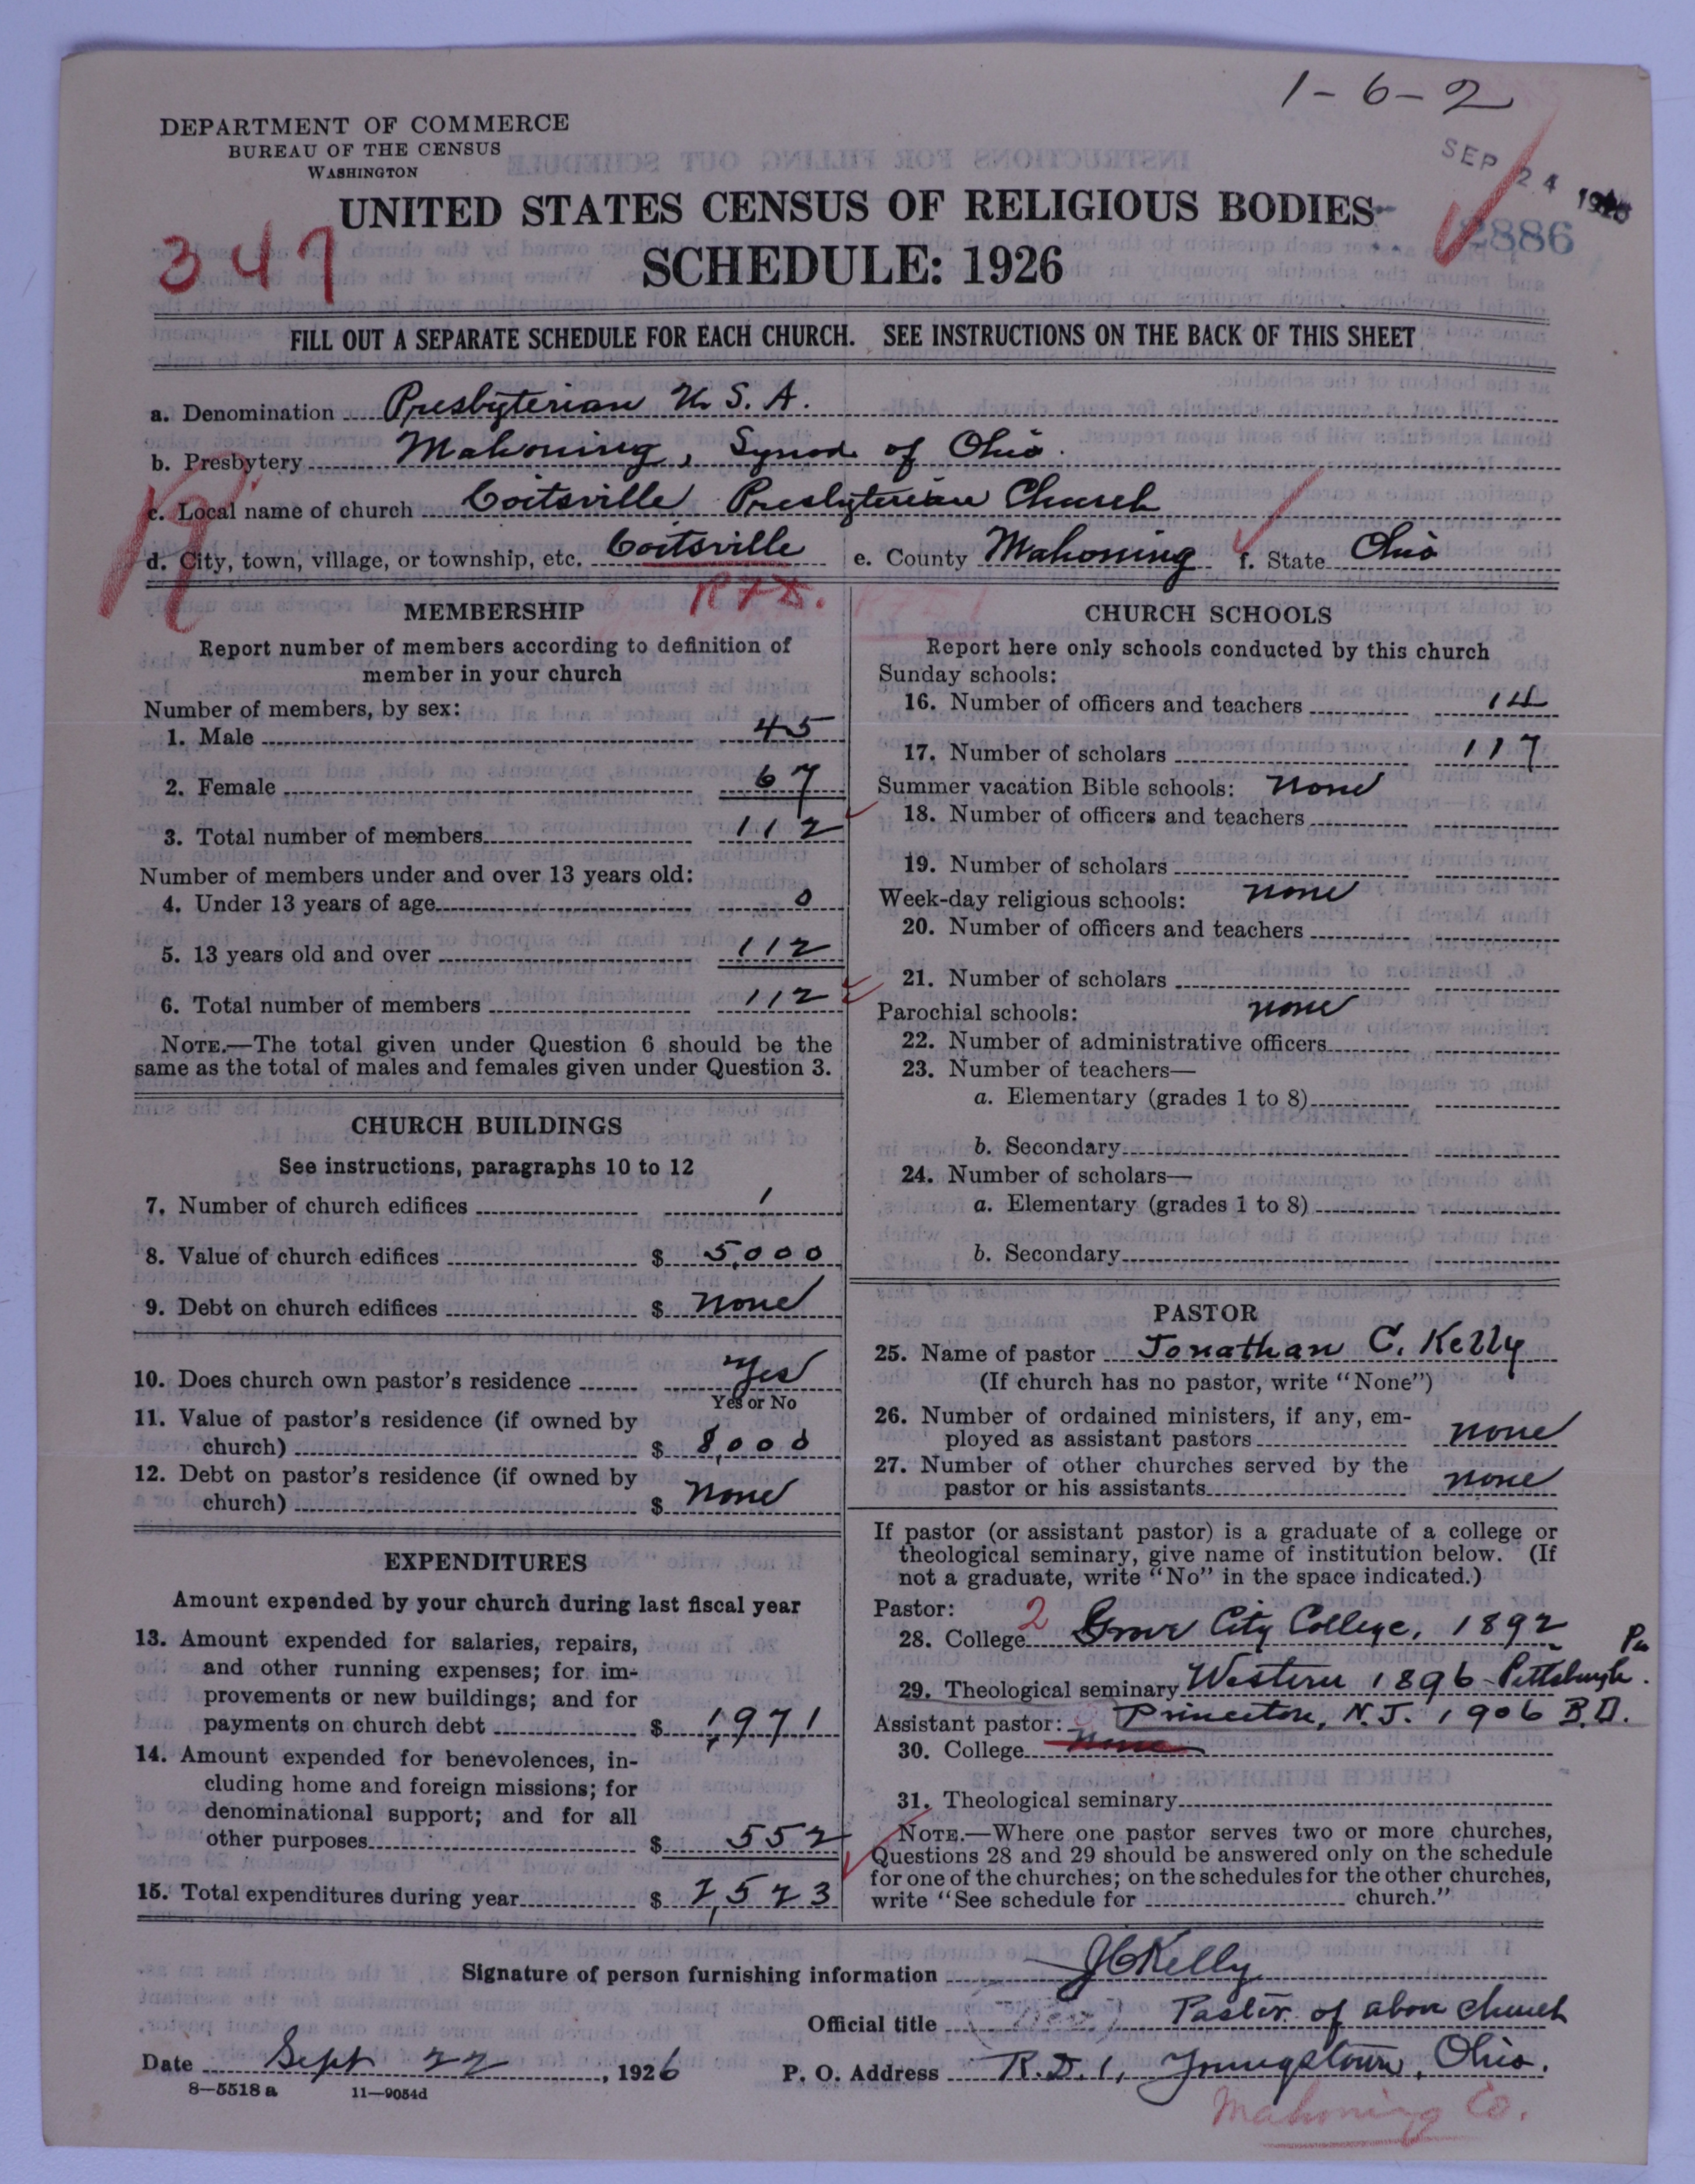 1-6-2
DEPARTMENT OF COMMERCE
BUREAU OF THE CENSUS
WASHINGTON
SEP 24 1926
2886
UNITED STATES CENSUS OF RELIGIOUS BODIES
347
SCHEDULE: 1926
FILL OUT A SEPARATE SCHEDULE FOR EACH CHURCH. SEE INSTRUCTIONS ON THE BACK OF THIS SHEET
a. Denomination Presbyterian U. S. A.
b. Presbytery Mahoning, Synod of Ohio.
c. Local name of church Coitsville Presbyterian Church
d. City, town, village, or township, etc. Coitsville e. County Mahoning f. State Ohio
R.F.D.
MEMBERSHIP
Report number of members according to definition of
member in your church
Number of members, by sex:
1. Male 45
2. Female 67
3. Total number of members 112
Number of members under and over 13 years old:
4. Under 13 years of age 0
5. 13 years old and over 112
6. Total number of members 112
NOTE.—The total given under Question 6 should be the
same as the total of males and females given under Question 3.
CHURCH BUILDINGS
See instructions, paragraphs 10 to 12
7. Number of church edifices 1
8. Value of church edifices $ 5,000
9. Debt on church edifices $ none
10. Does church own pastor's residence yes
Yes or No
11. Value of pastor's residence (if owned by
church) $ 8,000
12. Debt on pastor's residence (if owned by
church) $ none
EXPENDITURES
Amount expended by your church during last fiscal year
13. Amount expended for salaries, repairs,
and other running expenses; for im-
provements or new buildings; and for
payments on church debt $ 1,971
14. Amount expended for benevolences, in-
cluding home and foreign missions; for
denominational support; and for all
other purposes $ 552
15. Total expenditures during year $ 2,523
CHURCH SCHOOLS
Report here only schools conducted by this church
Sunday schools:
16. Number of officers and teachers 14
17. Number of scholars 117
Summer vacation Bible schools: none
18. Number of officers and teachers
19. Number of scholars
Week-day religious schools: none
20. Number of officers and teachers
21. Number of scholars
Parochial schools: none
22. Number of administrative officers
23. Number of teachers—
a. Elementary (grades 1 to 8)
b. Secondary
24. Number of scholars—
a. Elementary (grades 1 to 8)
b. Secondary
PASTOR
25. Name of pastor Jonathan C. Kelly
(If church has no pastor, write "None")
26. Number of ordained ministers, if any, em-
ployed as assistant pastors none
27. Number of other churches served by the
pastor or his assistants none
If pastor (or assistant pastor) is a graduate of a college or
theological seminary, give name of institution below. (If
not a graduate, write "No" in the space indicated.)
Pastor: 2
28. College Grove City College, 1892 Pa
29. Theological seminary Western 1896 Pittsburgh.
Assistant pastor: Princeton, N.J. 1906 B.D.
30. College none
31. Theological seminary
NOTE.—Where one pastor serves two or more churches,
Questions 28 and 29 should be answered only on the schedule
for one of the churches; on the schedules for the other churches,
write "See schedule for church."
Signature of person furnishing information J C Kelly
Official title (Rev.) Pastor of above church
Date Sept 22, 1926 P. O. Address R.D. 1, Youngstown, Ohio.
8—5518 a 11—9054d
Mahoning Co.